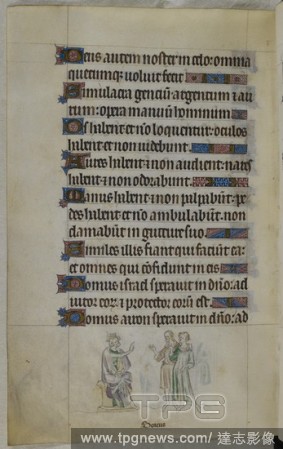 Deus autem noster in celo: omnia
quecumq; voluit fecit
Simulacra genciū argentum ⁊ au
rum: opera manuū hominum
Os habent et nō loquentur: oculos
habent et non videbunt
Aures habent ⁊ non audient: nares
habent ⁊ non odorabunt
Manus habent ⁊ non palpabūt: pe
des habent et nō ambulabūt: non
clamabūt in gutture suo
Similes illis fiant qui faciūt ea:
et omnes qui cōfidunt in eis
Domus israel speravit in dn̄o: ad
iutor eoꝝ ⁊ protector eoꝝ est
Domus aaron speravit in dn̄o: ad
TPG
www.tpgnews.com/達志影像